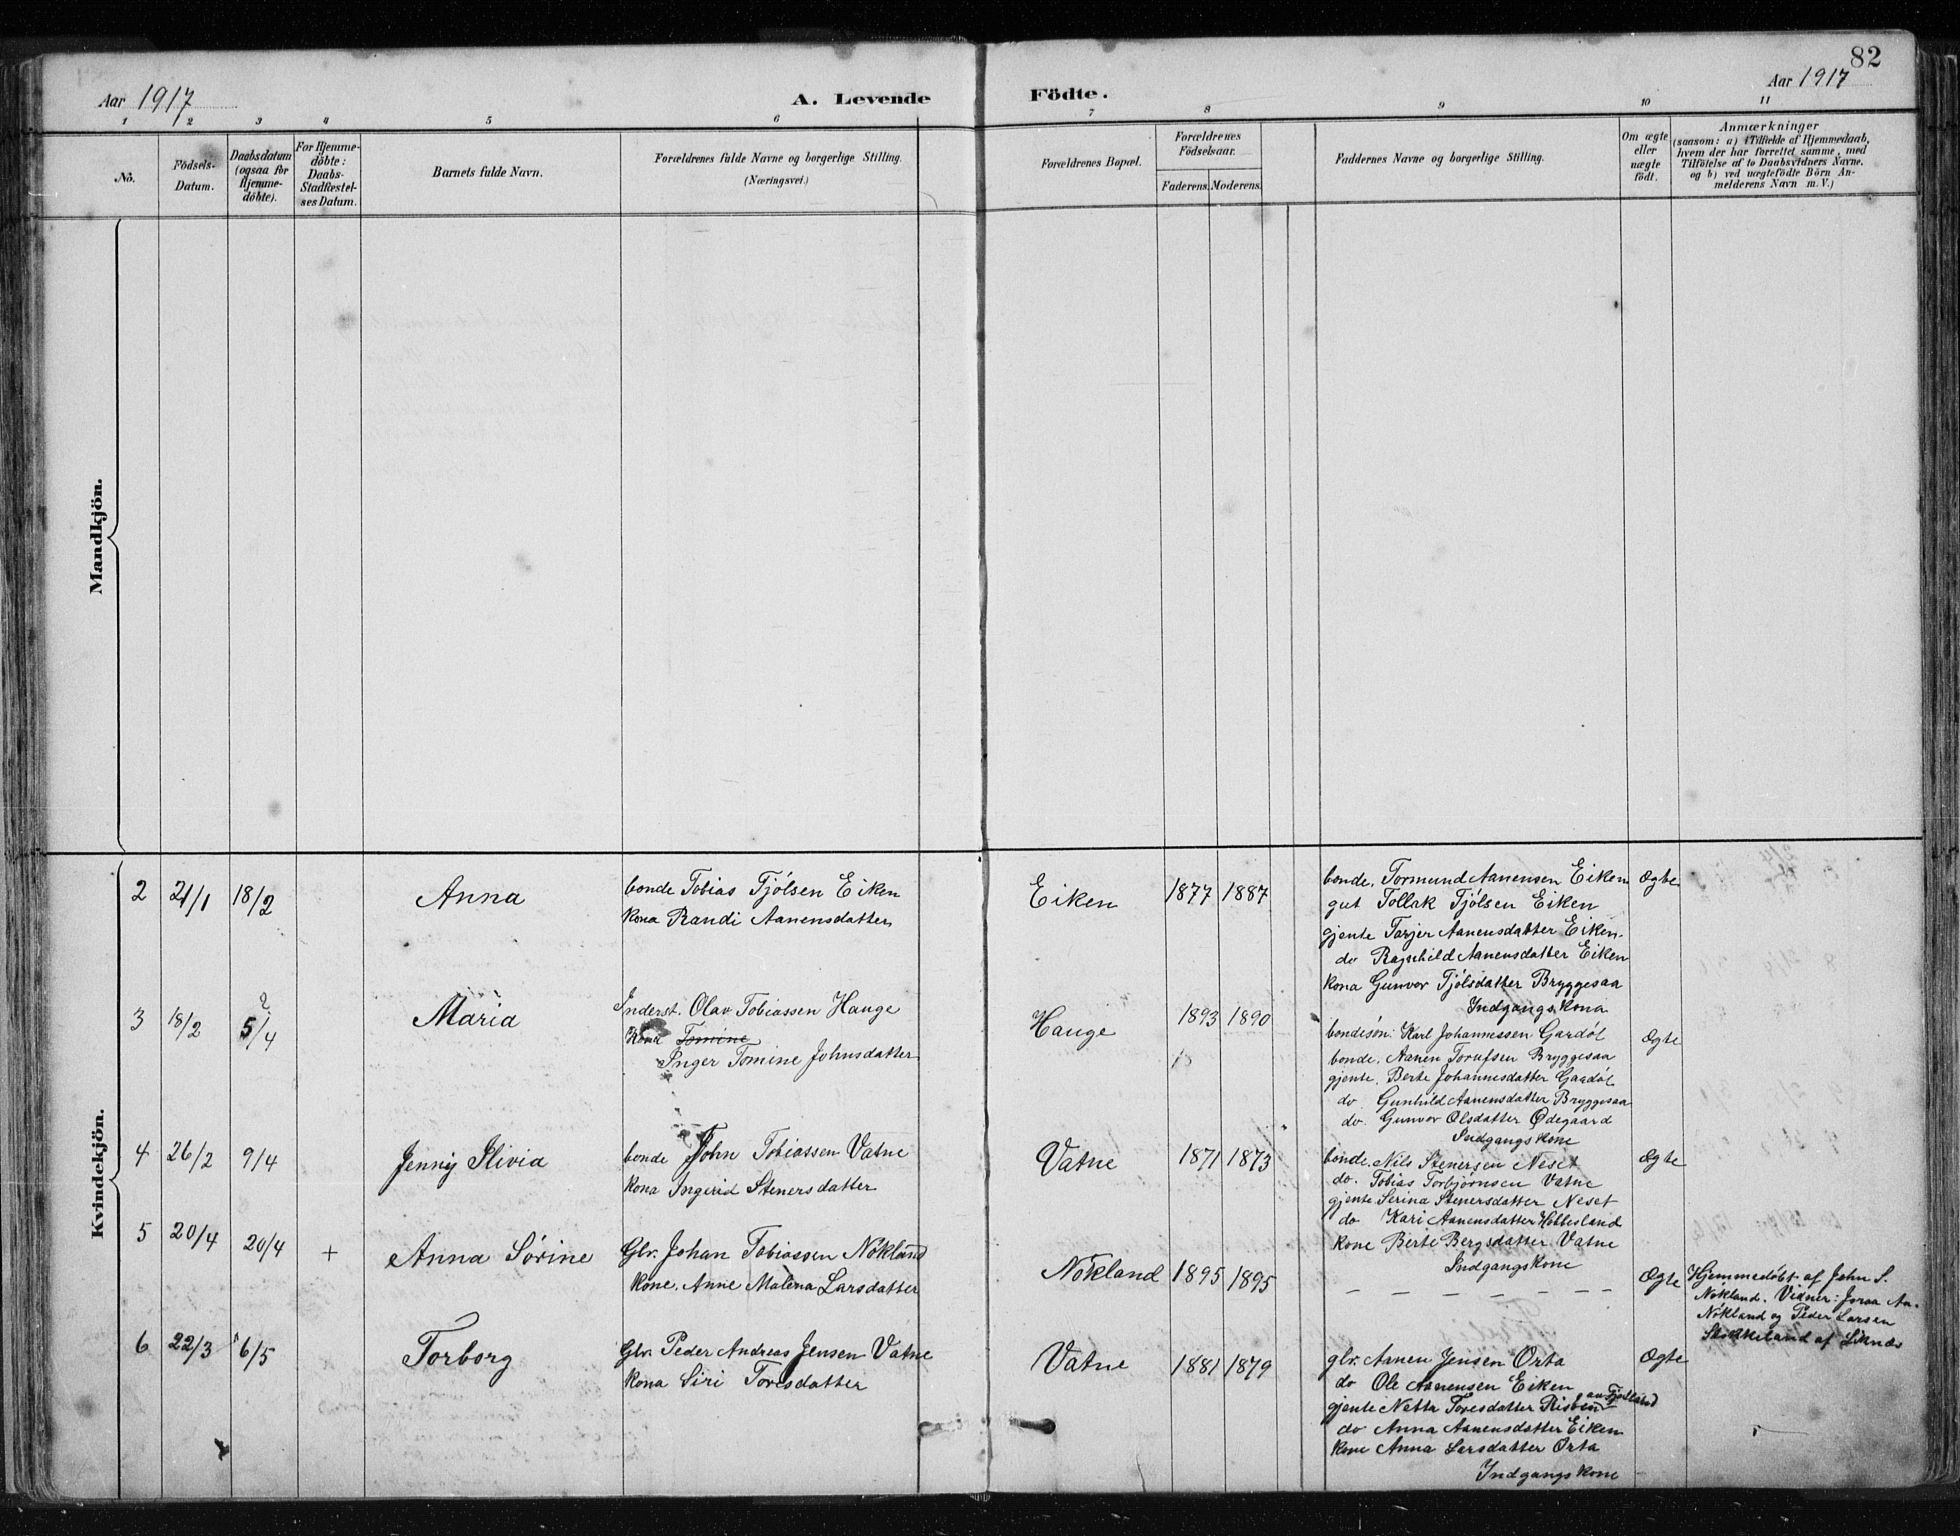 82
Aar 1917
A. Levende Födte.
Aar 1917
1 2 3 4 5 6 7 8 9 10 11
No.
Födsels-
Datum.
Daabsdatum
(ogsaa for
Hjemme-
döbte).
For Hjemme-
döbte:
Daabs-
Stadfæstel-
ses Datum.
Barnets fulde Navn.
Forældrenes fulde Navne og borgerlige Stilling.
(Næringsvei.)
Forældrenes Bopæl.
Forældrenes
Födselsaar.
Faderens. Moderens.
Faddernes Navne og borgerlige Stilling.
Om ægte
eller
uægte
födt.
Anmærkninger
(saasom: a) i Tilfælde af Hjemmedaab,
hvem der har forrettet samme, med
Tilföielse af to Daabsvidners Navne.
og b) ved uægtefödte Börn An-
melderens Navn m. V.)
Mandkjön.
Kvindekjön.
2 21/1 18/2
Anna
bonde Tobias Tjölsen Eiken
kona Randi Aanensdatter
Eiken
1877 1887
bonde, Tormund Aanensen Eiken
gut Tollak Tjölsen Eiken
gjente Tarjer Aanensdatter Eiken
do Ragnhild Aanensdatter Eiken
kona Gunvor Tjölsdatter Bryggesaa
Indgangskona
Ægte
3 18/2 5/4
2
Maria
Inderst. Olav Tobiassen Hauge
kona Tomine
Inger Tomine Johnsdatter
Hauge
1893 1890
18
bondesön: Karl Johannessen Gardöl
bonde, Aanen Torufsen Bryggesaa
gjente, Berte Johannesdatter Gardöl
do Gunhild Aanensdatter Bryggesaa
do. Gunvor Olsdatter Ødegaard
Indgangskone
Ægte
4 26/2 9/4
Jenny Slivia
bonde John Tobiassen Vatne
kona Ingerid Stenersdatter
Vatne
1871 1873
bonde, Nils Stenersen Neset
do. Tobias Torbjörnsen Vatne
gjente Serina Stenersdatter Neset
do Kari Aanensdatter Hobbesland
kone Berte Bergsdatter Vatne
Indgangskone
Ægte
5 20/4 20/4 +
Anna Sörine
Gbr. Johan Tobiassen Nökland
kone, Anne Malena Larsdatter
Nökland
1895 1895
– – – – – – – – –
Ægte
Hjemmedöbt af John S.
Nökland. Vidner: Joraa An.
Nökland og Peder Larsen
Skökkeland af Liknes
6 22/3 6/5
Torborg
Gbr. Peder Andreas Jensen Vatne
kona Siri Toresdatter
Vatne
1881 1879
gbr. Aanen Jensen Orta
do Ole Aanensen Eiken
gjente Netta Toresdatter Risben av Fjotland
do Anna Aanensdatter Eiken
kone Anna Larsdatter Orta
Indgangskone
Ægte